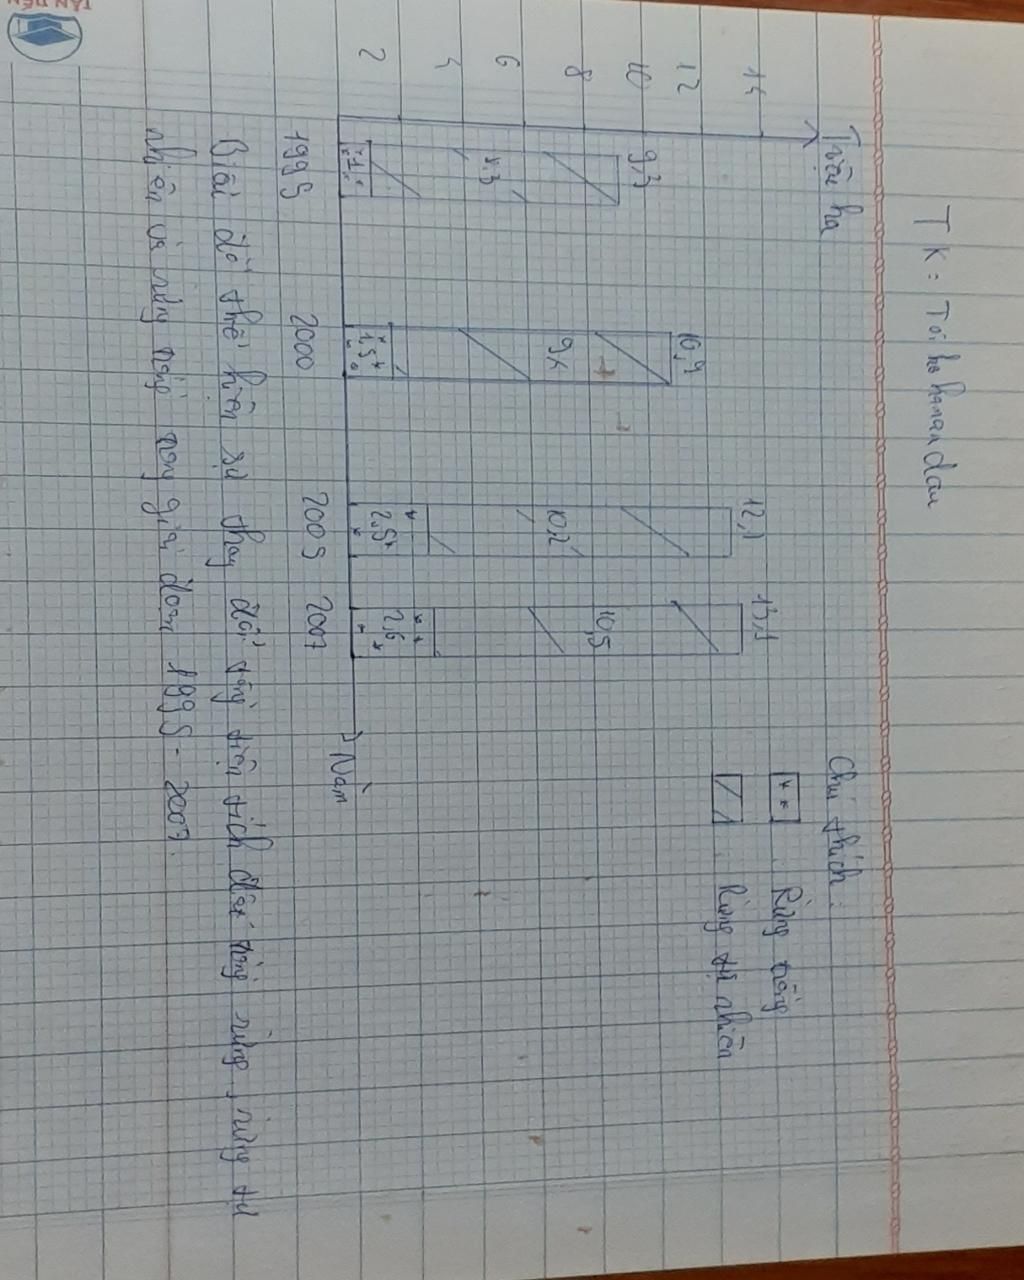 TK: Tôi ho hanan dau
Triệu ha
14
12
10
8
6
4
2
9,3
8,3
1,0
10,9
9,4
1,5
12,7
10,2
2,5
13,1
10,5
2,6
1995
2000
2005
2007
Năm
Chú thích:
Rừng trồng
Rừng tự nhiên
Biểu đồ thể hiện sự thay đổi tổng diện tích đất rừng, rừng tự
nhiên và rừng trồng trong giai đoạn 1995 - 2007.
TÂN TIẾN